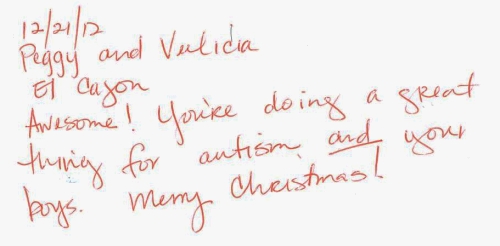 12/21/12
Peggy and Velicia
El Cajon
Awesome! You're doing a great
thing for autism and your
boys. Merry Christmas!